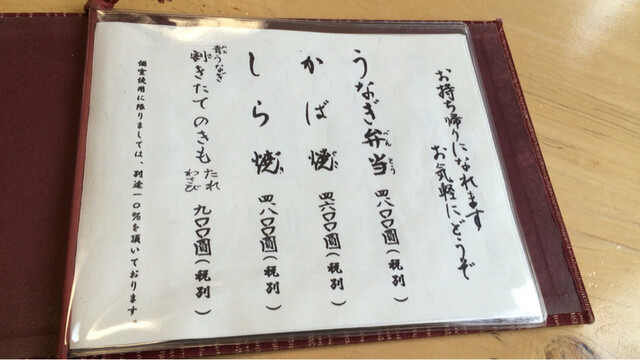 お持ち帰りになれます
お気軽にどうぞ
うなぎ弁当 四八〇〇圓(税別)
べんとう
かば焼 四六〇〇圓(税別)
やき
しら焼 四八〇〇圓(税別)
やき
青うなぎ
割きたてのきも たれ わさび 九〇〇圓(税別)
個室使用に限りましては、別途一〇%を頂いております。